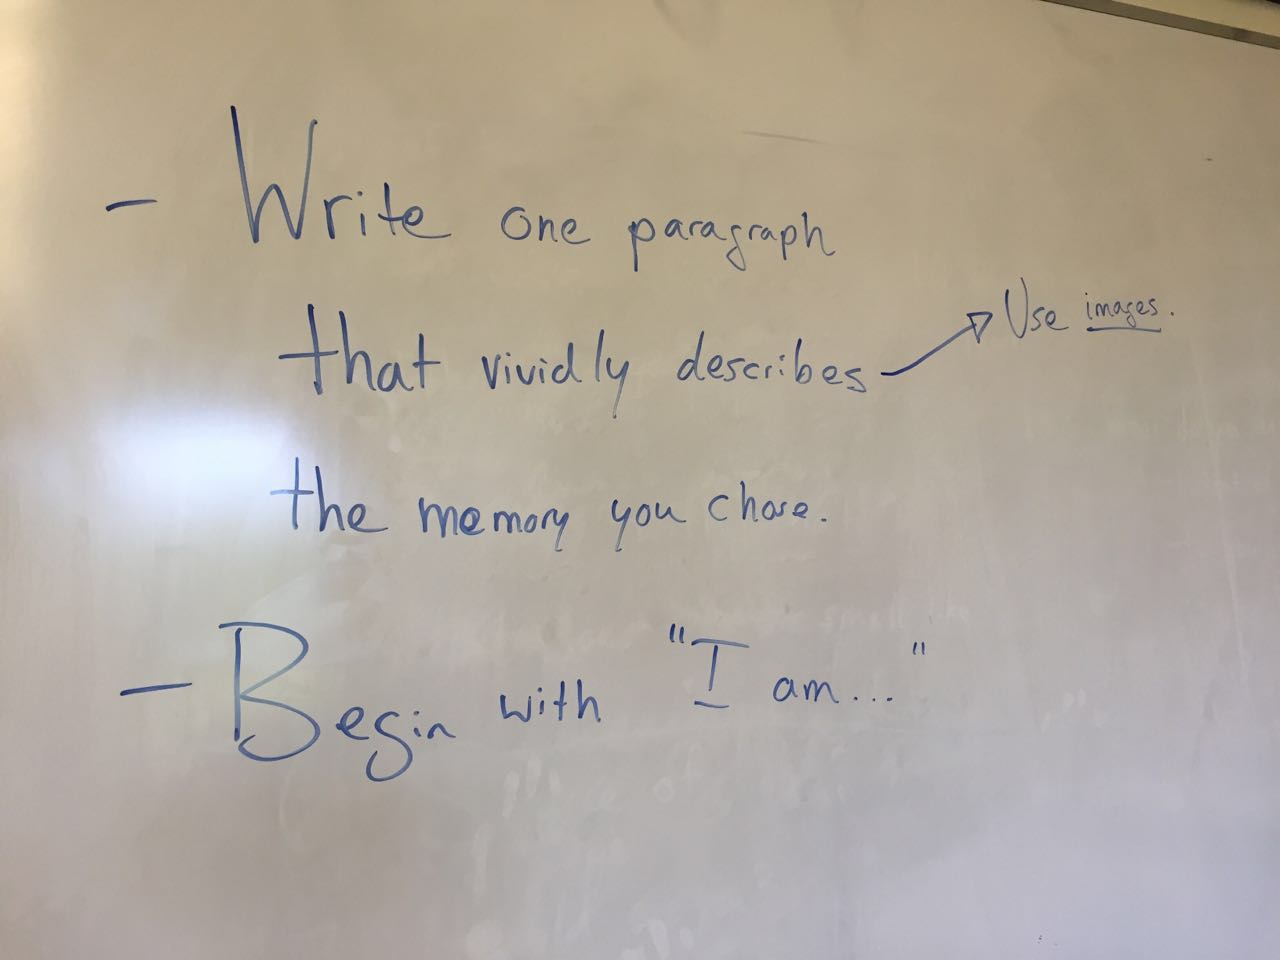 - Write one paragraph
that vividly describes → Use images.
the memory you chose.
- Begin with "I am..."